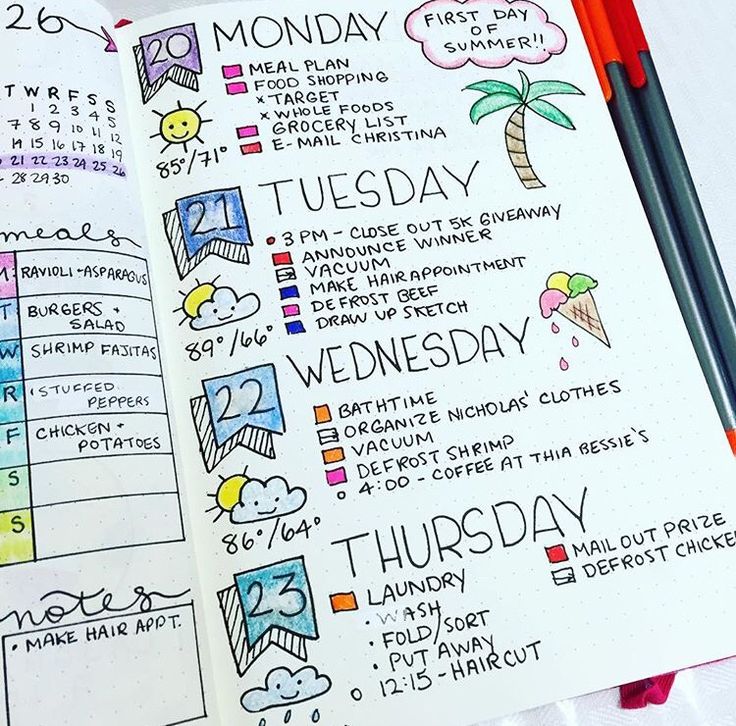 26
T W R F S S
1 2 3 4 5
7 8 9 10 11 12
14 15 16 17 18 19
21 22 23 24 25 26
28 29 30
meals
M RAVIOLI + ASPARAGUS
T BURGERS +
SALAD
W SHRIMP FAJITAS
R STUFFED
PEPPERS
F CHICKEN +
POTATOES
S
S
notes
• MAKE HAIR APPT.
20 MONDAY
FIRST DAY
OF
SUMMER!!
MEAL PLAN
FOOD SHOPPING
x TARGET
x WHOLE FOODS
GROCERY LIST
E-MAIL CHRISTINA
85°/71°
21 TUESDAY
• 3 PM - CLOSE OUT 5K GIVEAWAY
ANNOUNCE WINNER
VACUUM
MAKE HAIR APPOINTMENT
DEFROST BEEF
DRAW UP SKETCH
89°/66°
22 WEDNESDAY
BATHTIME
ORGANIZE NICHOLAS' CLOTHES
VACUUM
DEFROST SHRIMP
○ 4:00 - COFFEE AT THIA BESSIE'S
86°/64°
23 THURSDAY
LAUNDRY
• WASH
• FOLD/SORT
• PUT AWAY
○ 12:15 - HAIRCUT
MAIL OUT PRIZE
DEFROST CHICKE